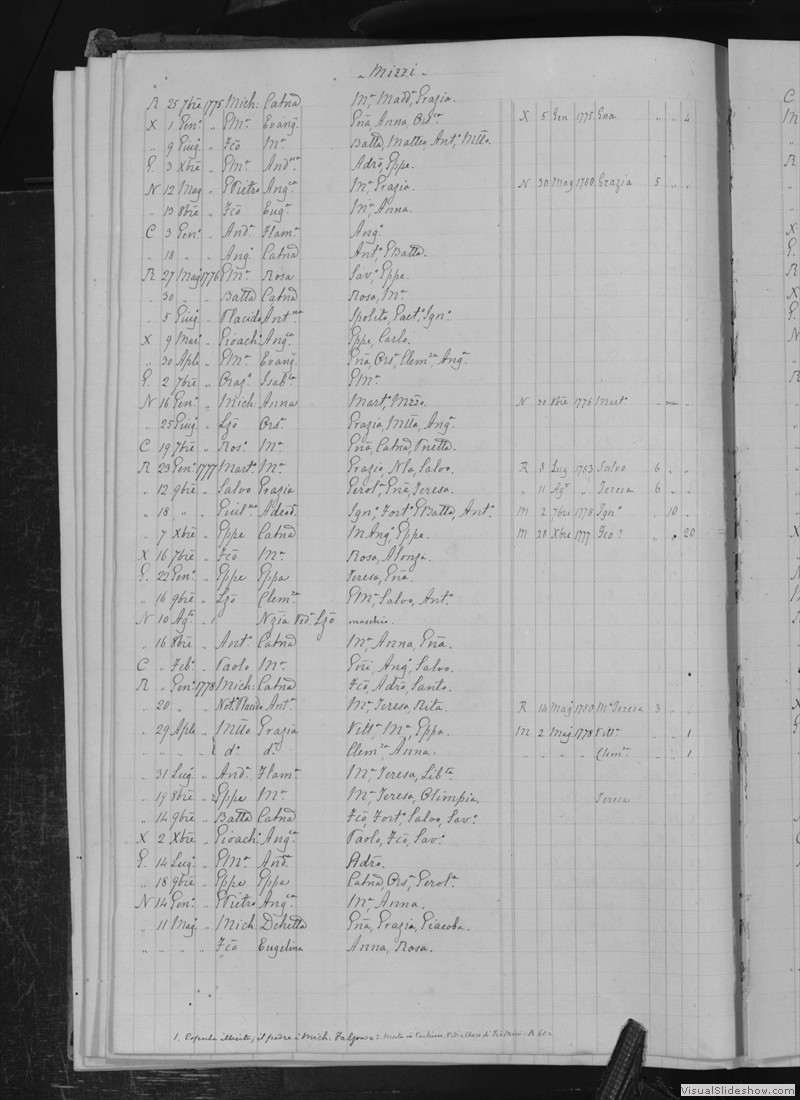 Mizzi
R 25 7bre 1775 Mich: Catñd Ma, Madd, Grazia.
X 1 Gen: " GMa Evang. Gña, Anna, Ors X 5 Gen 1775 Gña " " 4
" 9 Giug. " Fcõ Ma Batta, Matteo, Ant, Mtteo.
G. 3 Xbre " GMa And Adrõ, Gppe.
N 12 Mag " GPietro Ang Ma, Grazia. N 30 Mag 1780 Grazia 5 " "
" 13 8bre " Fcõ Eug. Ma, Anna.
C 3 Gen: " And. Flam. Ang.
" 18 " " Ang. Catñd Ant. GBatta.
R 27 Mag 1776 GMa Rosa Sav, Gppe.
" 30 " " Batta Catñd Rosa, Ma
" 5 Giug " Placido Ant Spoleto, Gaet, Ign.
X 9 Mar " Gioach: Ang Gppe, Carlo.
" 30 Aple " GMa Evang. Gña, Ors, Clem, Ang.
G. 2 7bre " Oraz. Isab GMa
N 16 Gen: " Mich: Anna Mart, N 30 8bre 1776 Mart "
" 25 Giug " Lzõ Ors. Grazia, Mtta, Ang.
C 19 7bre " Ros. Ma Gña, Catñd,
R 23 Gen: 1777 Mart. Ma Grazio, Nla, Salvo. R 8 Lug 1783 Salvo 6 " "
" 12 9bre " Salvo Grazia Gerol, Gña, Teresa. " 11 Agt " Teresa 6 " "
" 18 " " Guil Adeod Ign, Fort, GBatta, Ant. M 2 7bre 1778 Ign. " 10 "
" 7 Xbre " Gppe Catñd MAng, Gppe. M 28 Xbre 1777 Fco ? " " 20
X 16 7bre " Fcõ Ma Rosa, Alonza.
G. 22 Gen: " Gppe Gppa Teresa, Gña.
" 16 9bre " Lzõ Clem GMa, Salvo, Ant.
N 10 Agt " 1 Nzia Ved. Lzõ maschio.
" 16 8bre " Ant. Catñd Ma, Anna, Gña.
C " Feb. " Paolo Ma Gñi, Ang, Salvo.
R " Gen: 1778 Mich: Catñd Fcõ, Adrõ, Santo.
" 20 " " Not. Placido Ant. Ma, Teresa, Rita. R 14 Mag 1780 Ma Teresa 3 " "
" 29 Aple " Mtteo Grazia Vitt. Ma, Gppa. M 2 Mag 1778 Vitt. " " 1
" " " { do do Clem, Anna. " " " " Clem " " 1
" 31 Lug " And. Flam. Ma, Teresa, Lib
" 19 8bre " 2 Gppe Ma Ma, Teresa, Olimpia. Teresa
" 14 9bre " Batta Catñd Fcõ, Fort, Salvo, Sav.
X 2 Xbre " Gioach: Ang Paolo, Fcõ, Sav.
G. 14 Lug " GMa And. Adrõ.
" 18 9bre " Gppe Gppa Catñd, Ors, Gerol.
N 14 Gen: " GPietro Ang Ma, Anna.
" 11 Mag " Mich: Gña, Grazia, Giacoba.
" " " " Fcõ Eugelina Anna, Rosa.
1. Copula illecita; il padre è Mich: Falzon 2:
VisualSlideshow.com